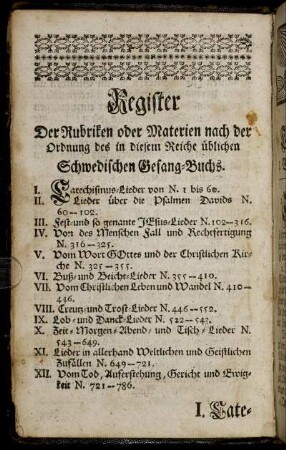 Register
Der Rubriken oder Materien nach der
Ordnung des in diesem Reiche üblichen
Schwedischen Gesang-Buchs.
I. Catechismus-Lieder von N. 1 bis 60.
II. Lieder über die Psalmen Davids N.
60--102.
III. Fest-und so genante JEsus-Lieder N. 102--316.
IV. Von des Menschen Fall und Rechtfertigung
N. 316--325.
V. Vom Wort GOttes und der Christlichen Kir-
che N. 325--355.
VI. Buß-und Beicht-Lieder N. 355--410.
VII. Vom Christlichen Leben und Wandel N. 410--
446.
VIII. Creutz-und Trost-Lieder N. 446--552.
IX. Lob-und Danck-Lieder N. 522--543.
X. Zeit-Morgen-Abend-und Tisch-Lieder N.
543--649.
XI. Lieder in allerhand Weltlichen und Geistlichen
Zufällen N. 649--721.
XII. Vom Tod, Auferstehung, Gericht und Ewig-
keit N. 721--786.
I. Cate-